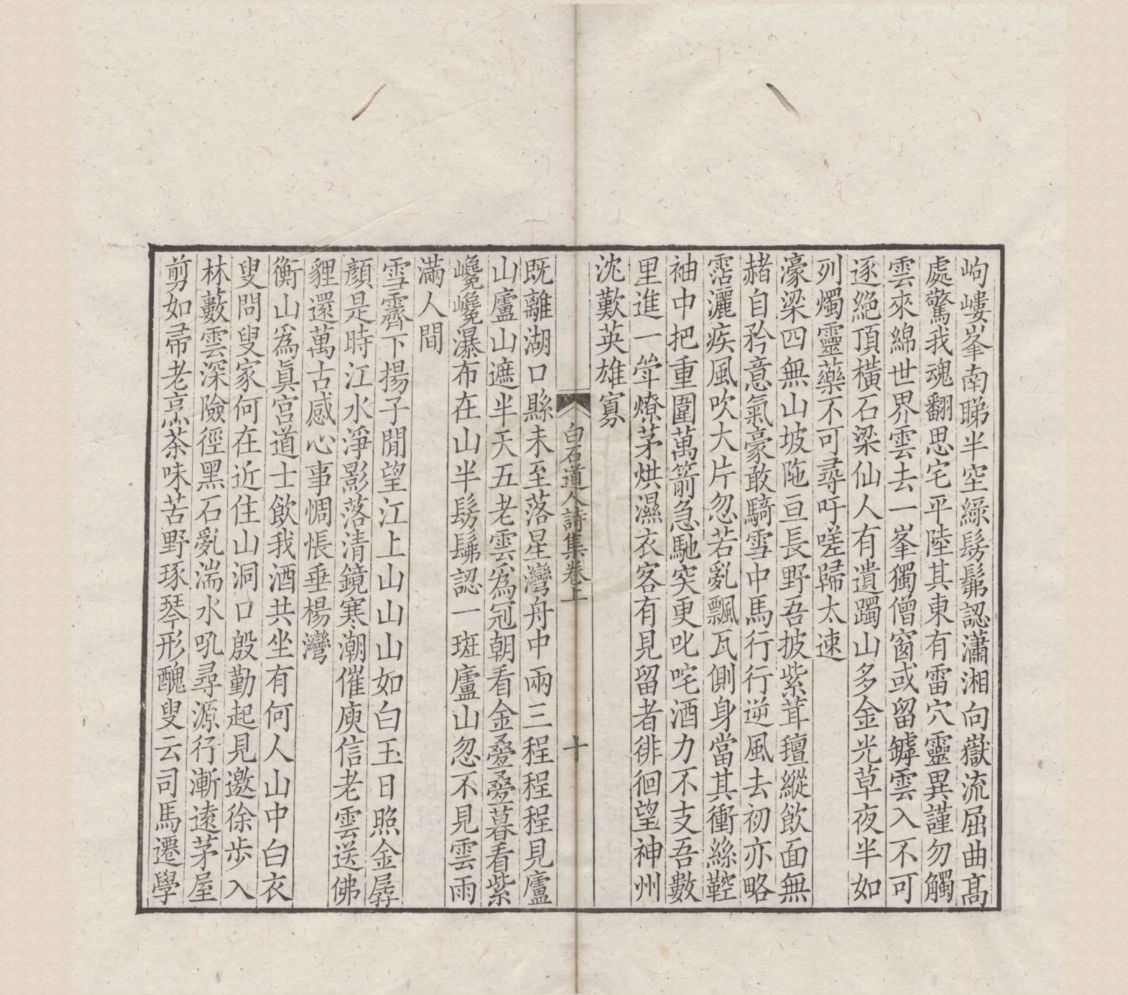 岣嶁峯南睇半空綠髣髴認瀟湘向嶽流屈曲高
處驚我魂翻思宅平陸其東有雷穴靈異謹勿觸
雲來綿世界雲去一峯獨僧窗或留罅雲入不可
逐絕頂橫石梁仙人有遺躅山多金光草夜半如
列燭靈藥不可尋吁嗟歸太速
濠梁四無山坡陁亘長野吾披紫茸氊縱飲面無
赭自矜意氣豪敢騎雪中馬行行逆風去初亦略
霑灑疾風吹大片忽若亂飄瓦側身當其衝絲鞚
袖中把重圍萬箭急馳突更叱咤酒力不支吾數
里進一斚燎茅烘濕衣客有見留者徘徊望神州
沈歎英雄寡
白石道人詩集卷上
十
既離湖口縣未至落星灣舟中兩三程程程見廬
山廬山遮半天五老雲爲冠朝看金疊疊暮看紫
巉巉瀑布在山半髣髴認一斑廬山忽不見雲雨
滿人間
雪霽下揚子閒望江上山山山如白玉日照金孱
顏是時江水淨影落清鏡寒潮催庾信老雲送佛
貍還萬古感心事惆悵垂楊灣
衡山爲眞宮道士飲我酒共坐有何人山中白衣
叟問叟家何在近住山洞口殷勤起見邀徐步入
林藪雲深險徑黑石亂湍水吼尋源行漸遠茅屋
剪如帚老烹茶味苦野琢琴形醜叟云司馬遷學